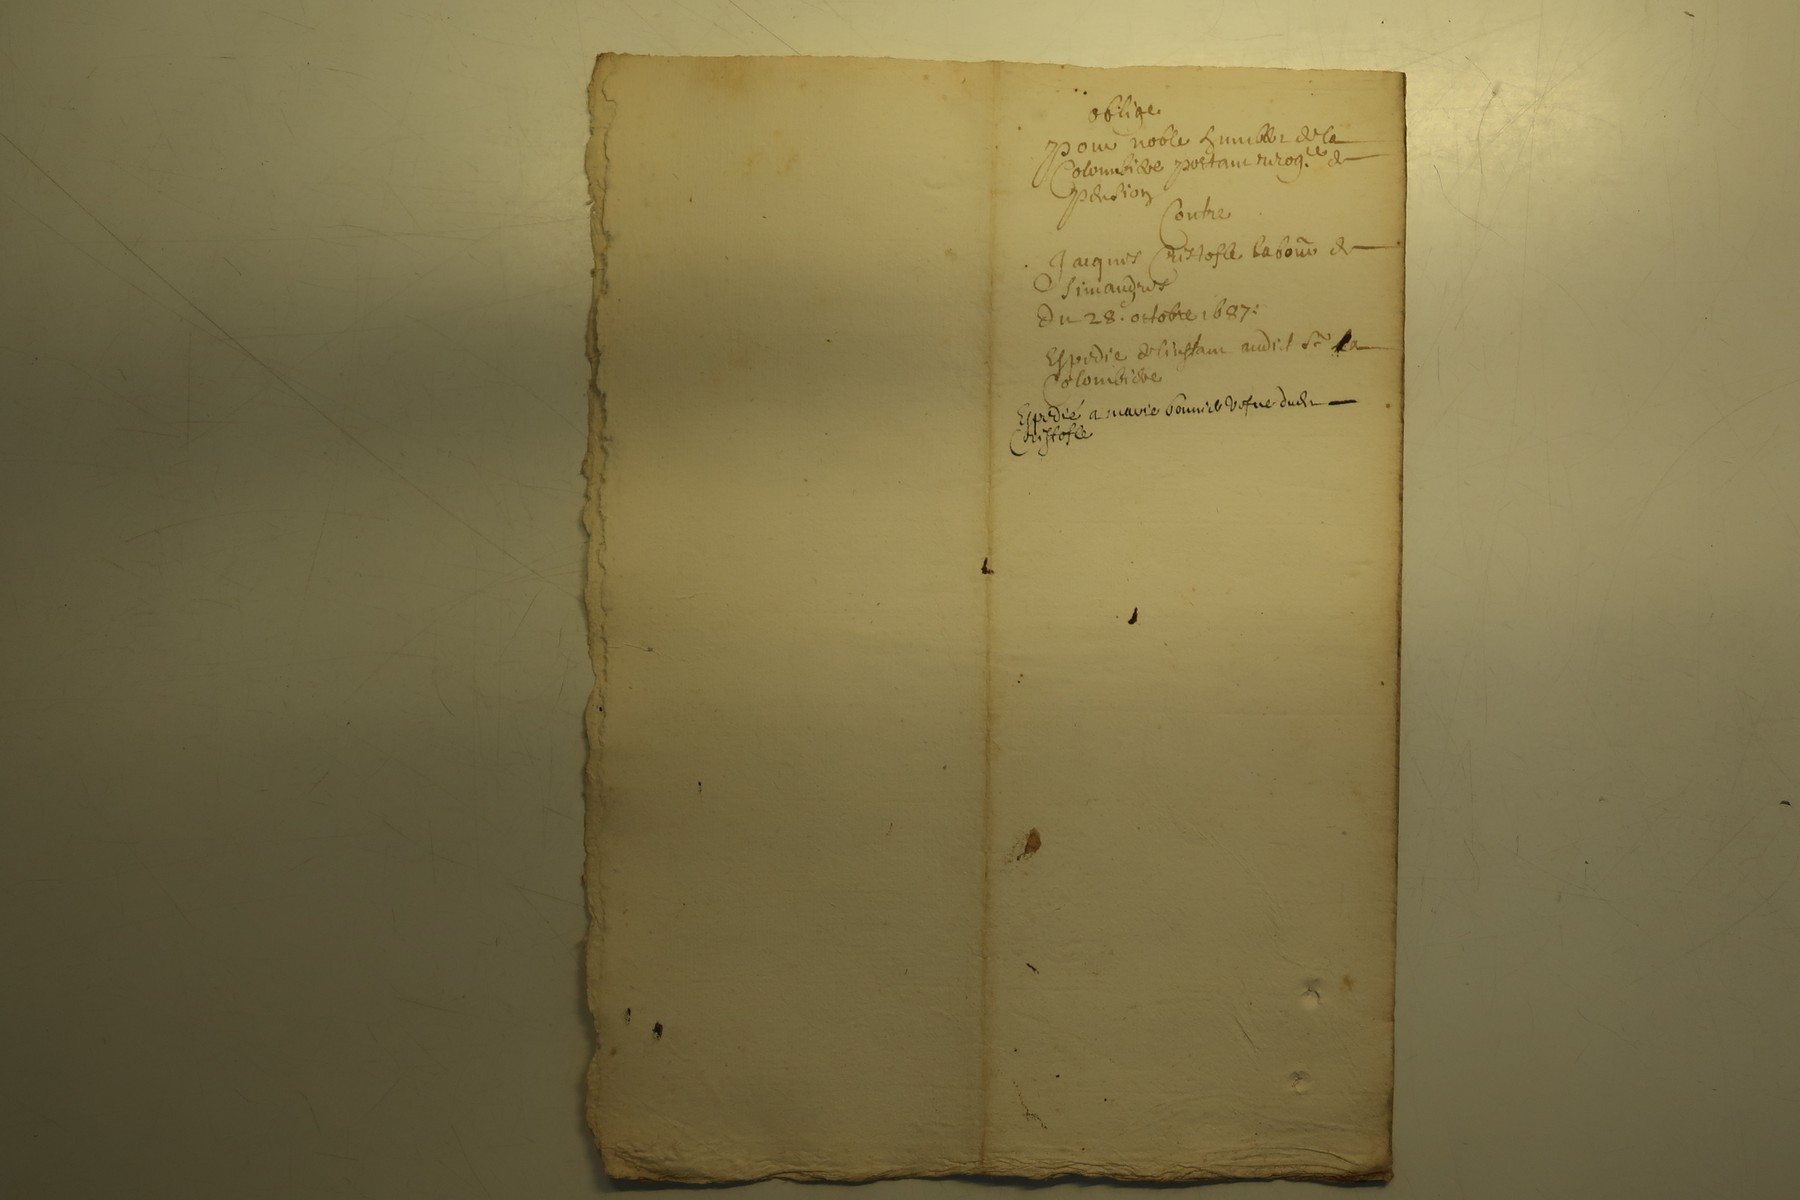 oblige
pour noble humbert de la
Colombiere portant de
pension
Contre
Jacques Cristofle labour de
Simandres
du 28e octobre 1687:
Expedie de linstant audict Sr La
Colombiere
Expedié a marie bonnet vefve dudt
Cristofle